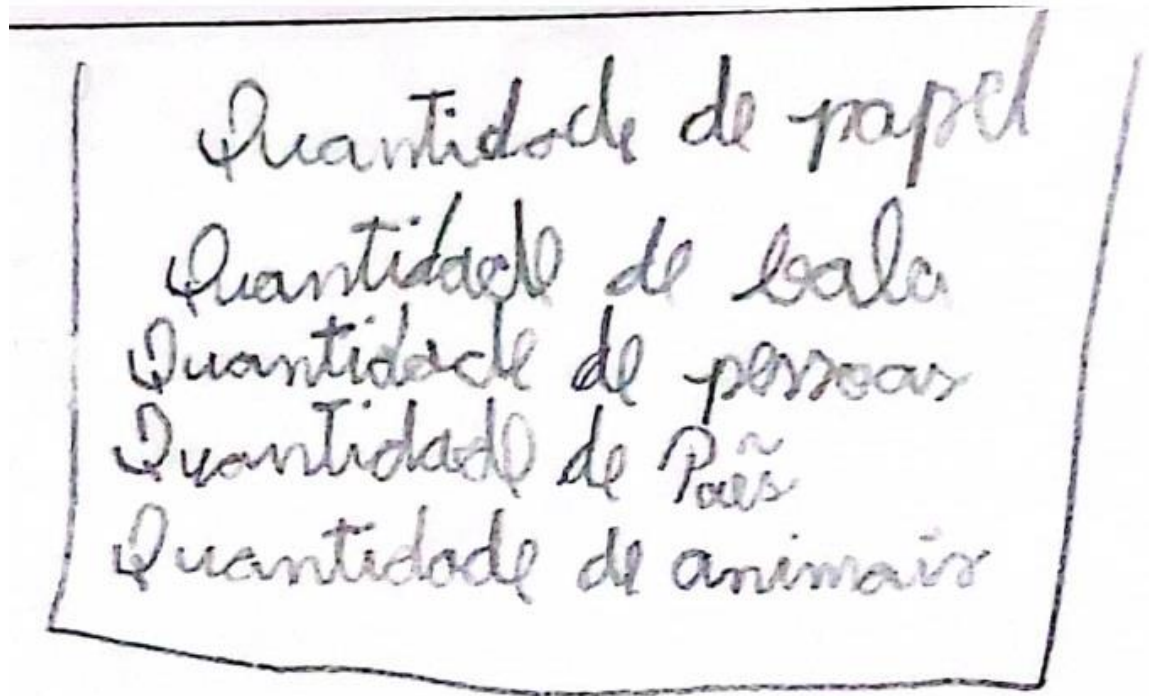 Quantidade de papel
Quantidade de bala
Quantidade de pessoas
Quantidade de Pães
Quantidade de animais